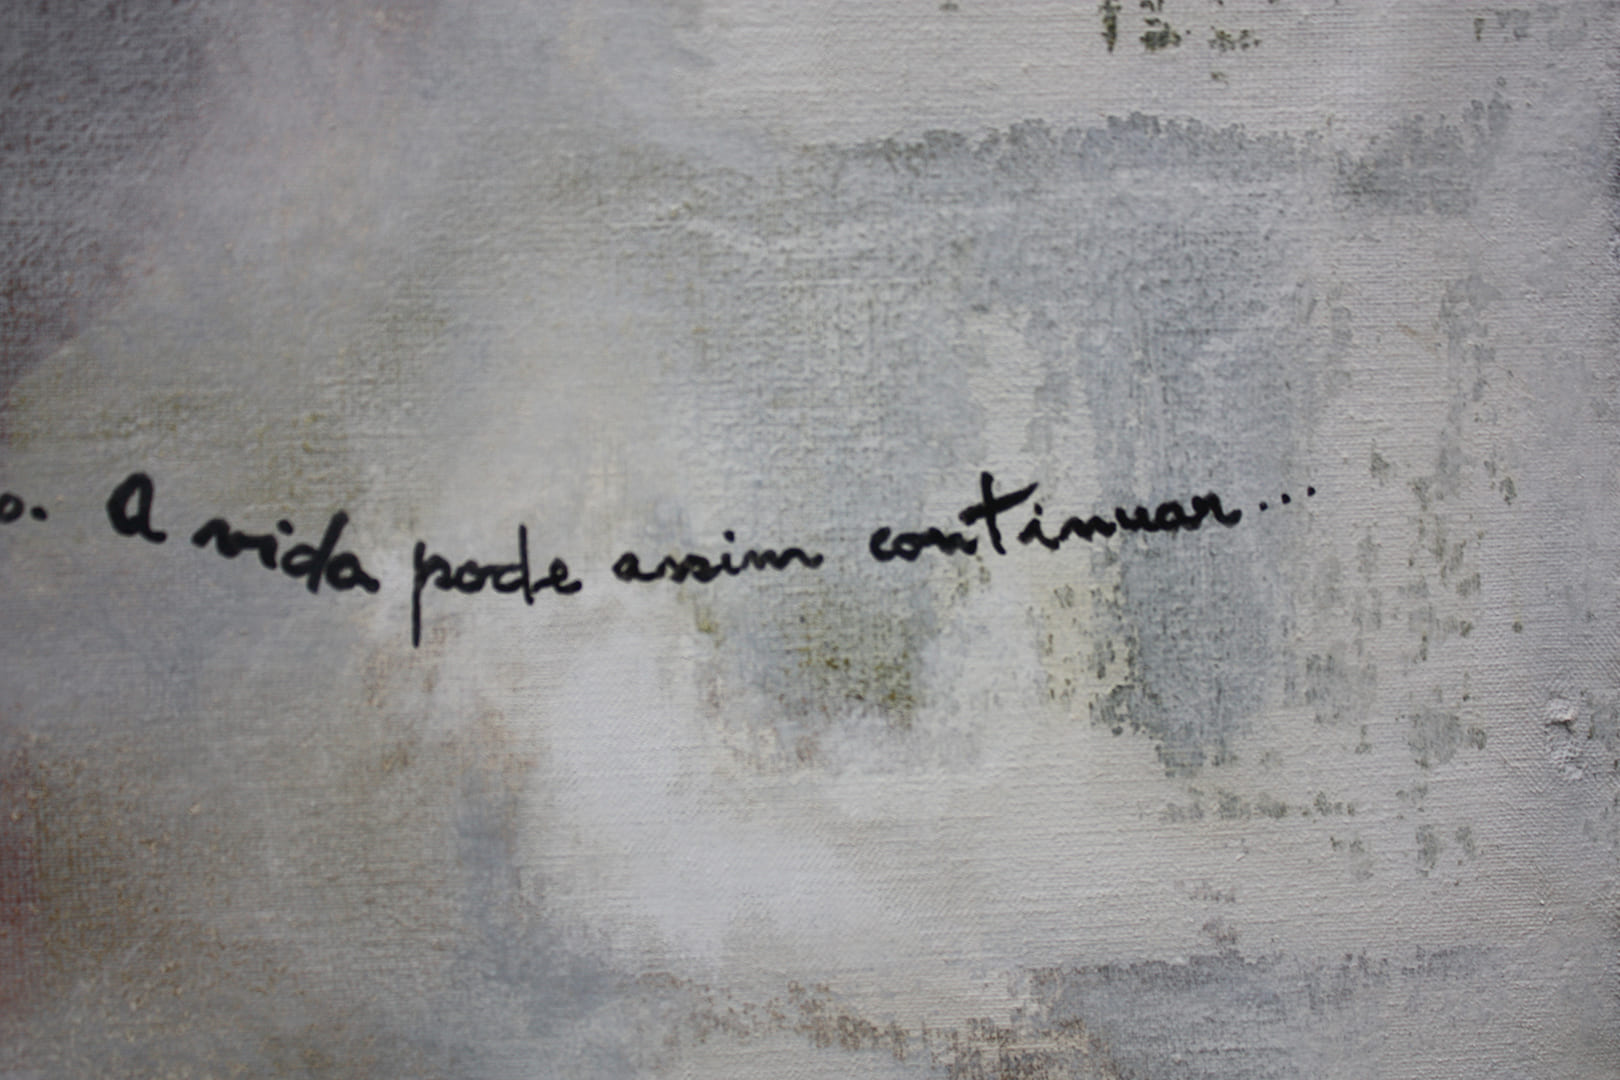 o. A vida pode assim continuar...